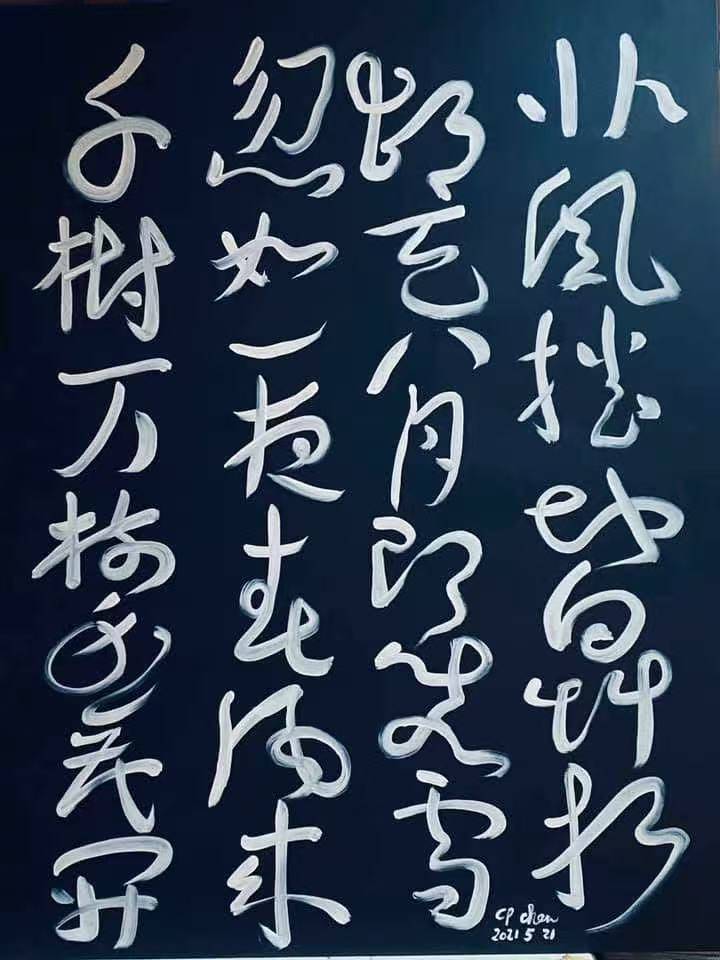 北風捲地白草折
胡天八月即飛雪
忽如一夜春風来
千樹万樹梨花開
CP chen
2021 5 21